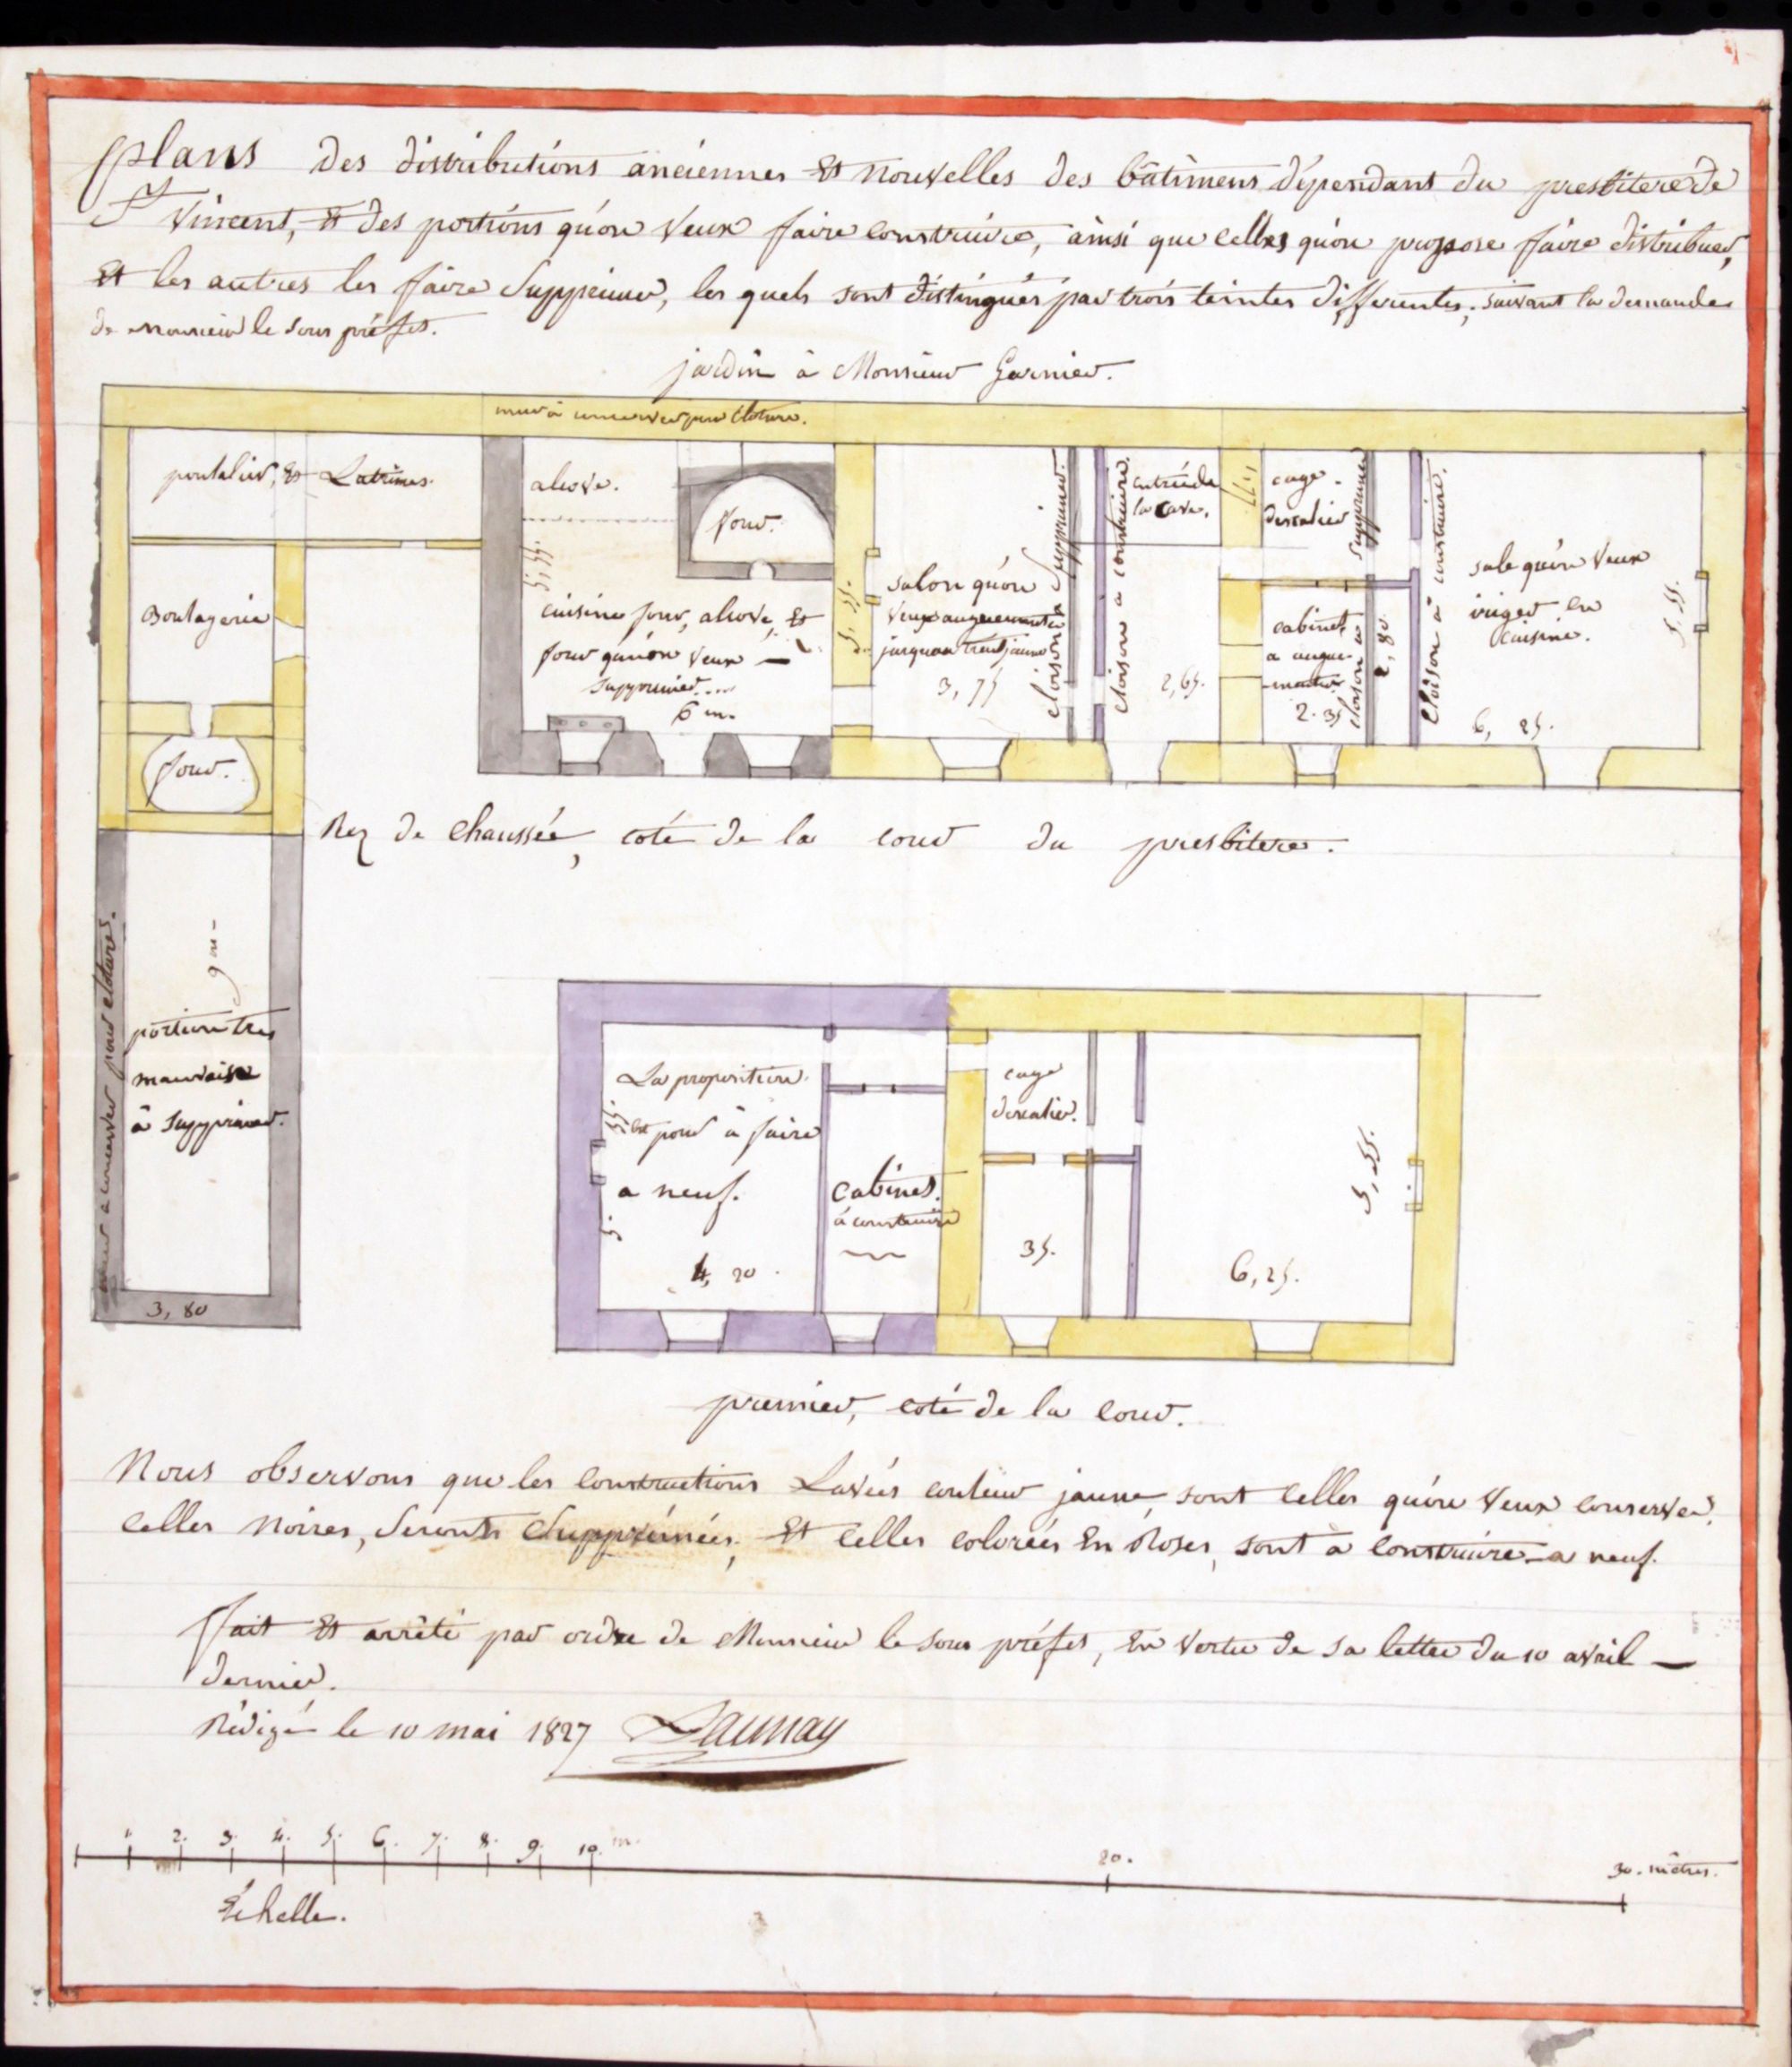 plans des distributions anciennes Et nouvelles des bâtimens dépendant du presbitere de
St Vincent, Et des portions qu'on Veux faire construire, ainsi que celles qu'on propose faire distribuer,
Et les autres les faire Supprimer, les quels sont distingués par trois teintes differentes, suivant la demande
de monsieur le sous préfet.
jardin à Monsieur Garnier.
mur à conserver pour Cloture.
poulalier, Et Latrines.
alcove.
four.
entrée de
la Cave.
cage
descalier
Boulagerie
5,55.
cuisine four, alcove, Et
four qu'on Veux
supprimer
6 m.
5,55.
salon qu'on
Veux augmenter
jusquau trait jaune
3,75
Cloison à Supprimer.
Cloison a construire.
2,65.
cabinet
a augmenter
2.35
Cloison a Supprimer
2,80
Cloison a construire.
sale qu'on Veux
eriger en
cuisine.
5,55.
6, 25.
four.
Rez de Chaussée, coté de la cour du presbitere.
mur a conserver pour cloture.
9 m
portion tres
mauvaise
à Supprimer.
3, 80
La proposition
est pour à faire
a neuf.
4, 20.
5,55
Cabinet
à construire
cage
descalier.
35.
6,25.
5,55.
premier, coté de la cour.
Nous observons que les constructions Lavées couleur jaune sont celles qu'on Veux conserver,
Celles Noires, Seronts Supprimées, Et Celles colorées En Roses, sont a construire a neuf.
Fait Et arrêté par ordre de Monsieur le sous préfet, En Vertu de sa lettre du 10 avril
dernier.
Rédigé le 10 mai 1827 Launay
1. 2. 3. 4. 5. 6. 7. 8. 9. 10. m. 20. 30. mètres.
Echelle.